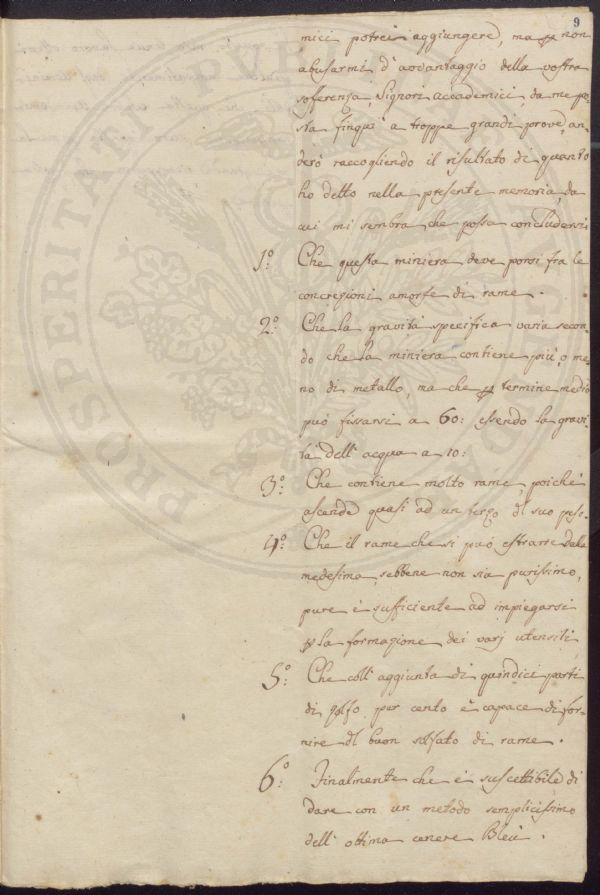 9
mici potrei aggiungere, ma p non
abusarmi d'avvantaggio della vostra
sofferenza, Signori accademici, da me po-
sta finqui a troppe grandi prove, an-
derò raccogliendo il risultato di quanto
ho detto nella presente memoria, da
cui mi sembra che possa concludersi
1.° Che questa miniera deve porsi fra le
concrezioni amorfe di rame.
2.° Che la gravità specifica varia secon-
do che la miniera contiene più, o me-
no di metallo, ma che p termine medio
può fissarsi a 60: essendo la gravi-
tà dell'acqua a 10:
3.° Che contiene molto rame, poiché
ascende quasi ad un terzo del suo peso.
4.° Che il rame che si può estrarre dalla
medesima, sebbene non sia purissimo,
pure è sufficiente ad impiegarsi
p la formazione dei varj utensili
5.° Che coll'aggiunta di quindici parti
di zolfo per cento è capace di for-
nire del buon solfato di rame.
6.° Finalmente che è suscettibile di
dare con un metodo semplicissimo
dell'ottima cenere Bleù.
PROSPERITATI PUBLICAE AUGENDAE